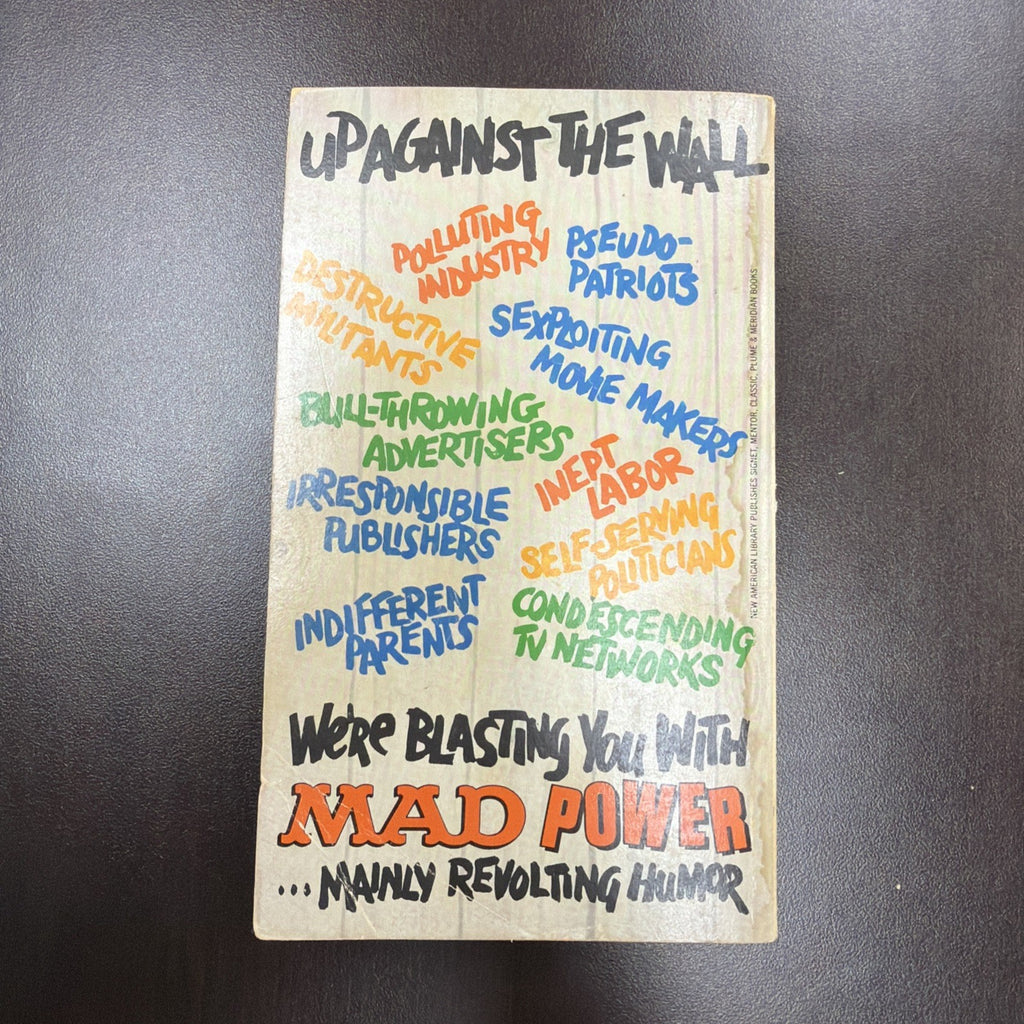 UP AGAINST THE WALL
POLLUTING
INDUSTRY
PSEUDO-
PATRIOTS
DESTRUCTIVE
MILITANTS
SEXPLOITING
MOVIE MAKERS
BULL-THROWING
ADVERTISERS
INEPT
LABOR
IRRESPONSIBLE
PUBLISHERS
SELF-SERVING
POLITICIANS
INDIFFERENT
PARENTS
CONDESCENDING
TV NETWORKS
WE'RE BLASTING YOU WITH
MAD POWER
...MAINLY REVOLTING HUMOR
NEW AMERICAN LIBRARY PUBLISHES SIGNET, MENTOR, CLASSIC, PLUME & MERIDIAN BOOKS